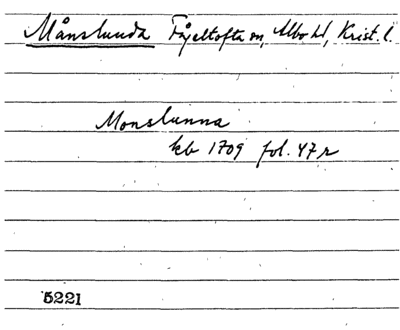 Månslunda Fågeltofta sn, Albo hd, Krist. l.
Monslunna
kb 1709 fol. 47 r
5221